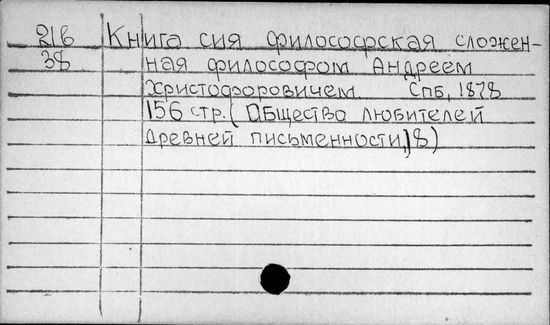 21б Книга сия философская сложен-
38 ная философом Андреем
Христофоровичем Спб, 1878
156 стр. (Общество любителей
древней письменности, 18)